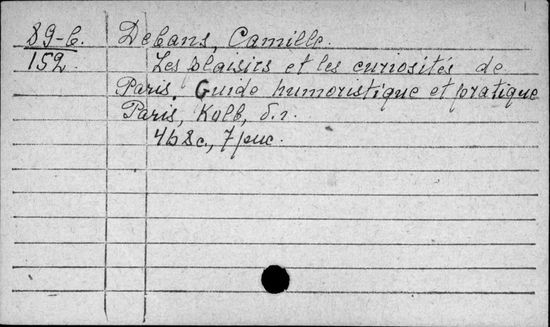 89-6. Debans, Camille.
152 Les plaisirs et les curiosités de
Paris. Guide humoristique et pratique
Paris, Kolb, б.г.
468 с., 7 рис.